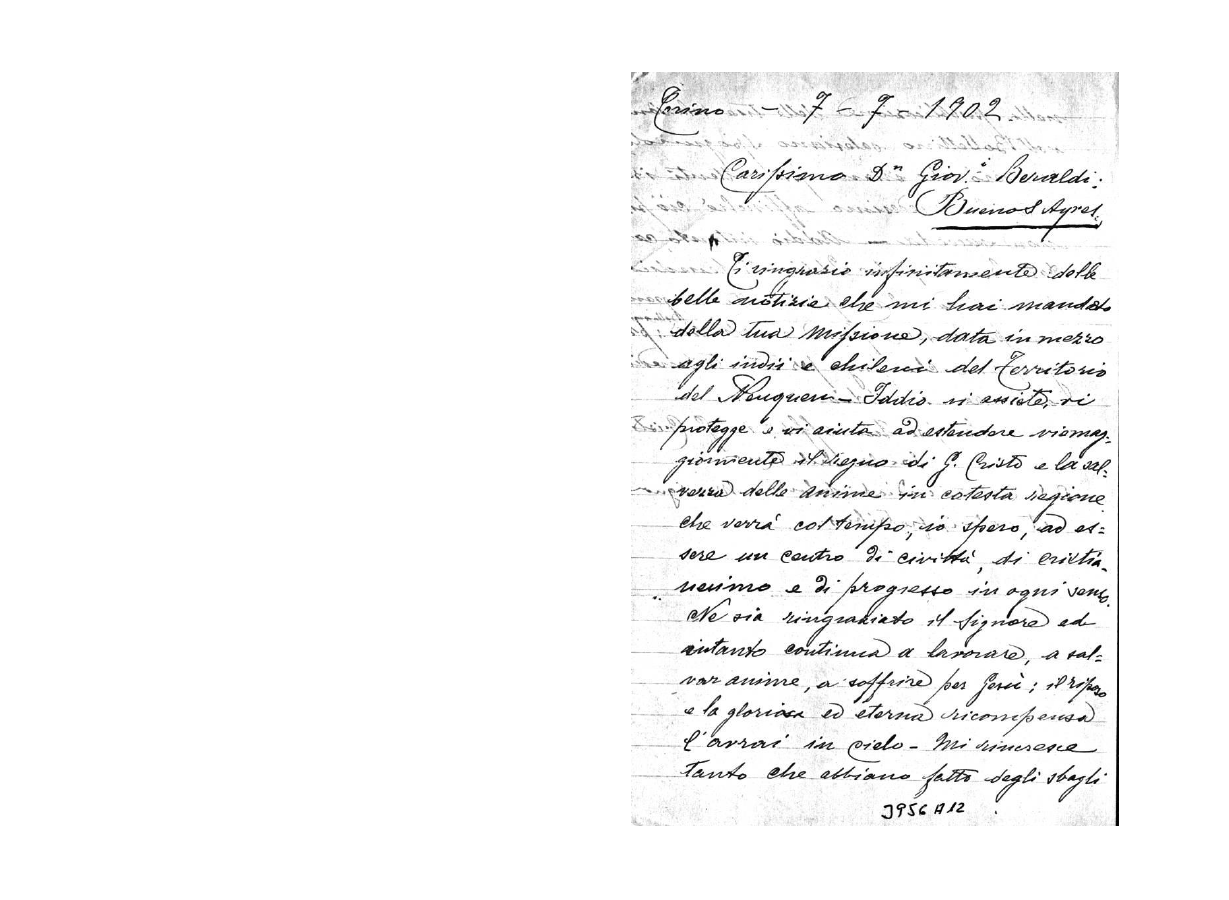 Torino - 7 - 7 - 1902.
Carissimo Dⁿ Giov.ⁱ Beraldi:
Buenos Ayres.
Ti ringrazio infinitamente delle
belle notizie che mi hai mandato
della tua missione, data in mezzo
agli indii e chileni del Territorio
del Neuquen - Iddio vi assiste, vi
protegge e vi aiuta ad estendere viemag-
giormente il regno di G. Cristo e la sal=
vezza delle anime in cotesta regione
che verrà col tempo, io spero, ad es=
sere un centro di civiltà, di cristia-
nesimo e di progresso in ogni senso.
Ne sia ringraziato il Signore ed
intanto continua a lavorare, a sal=
var anime, a soffrire per Gesù; il riposo
e la gloriosa ed eterna ricompensa
l'avrai in cielo - Mi rincresce
tanto che abbiano fatto degli sbagli
J956A12